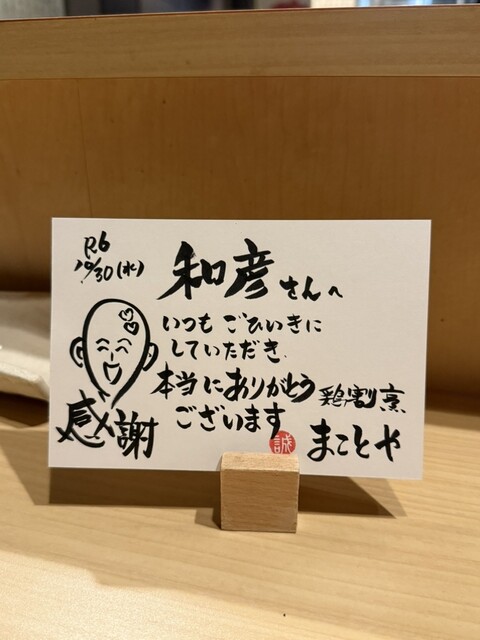 R6
10/30(水)
和彦さんへ
いつもごひいきに
していただき、
本当にありがとう
ございます
感謝
鶏割烹
まことや
誠